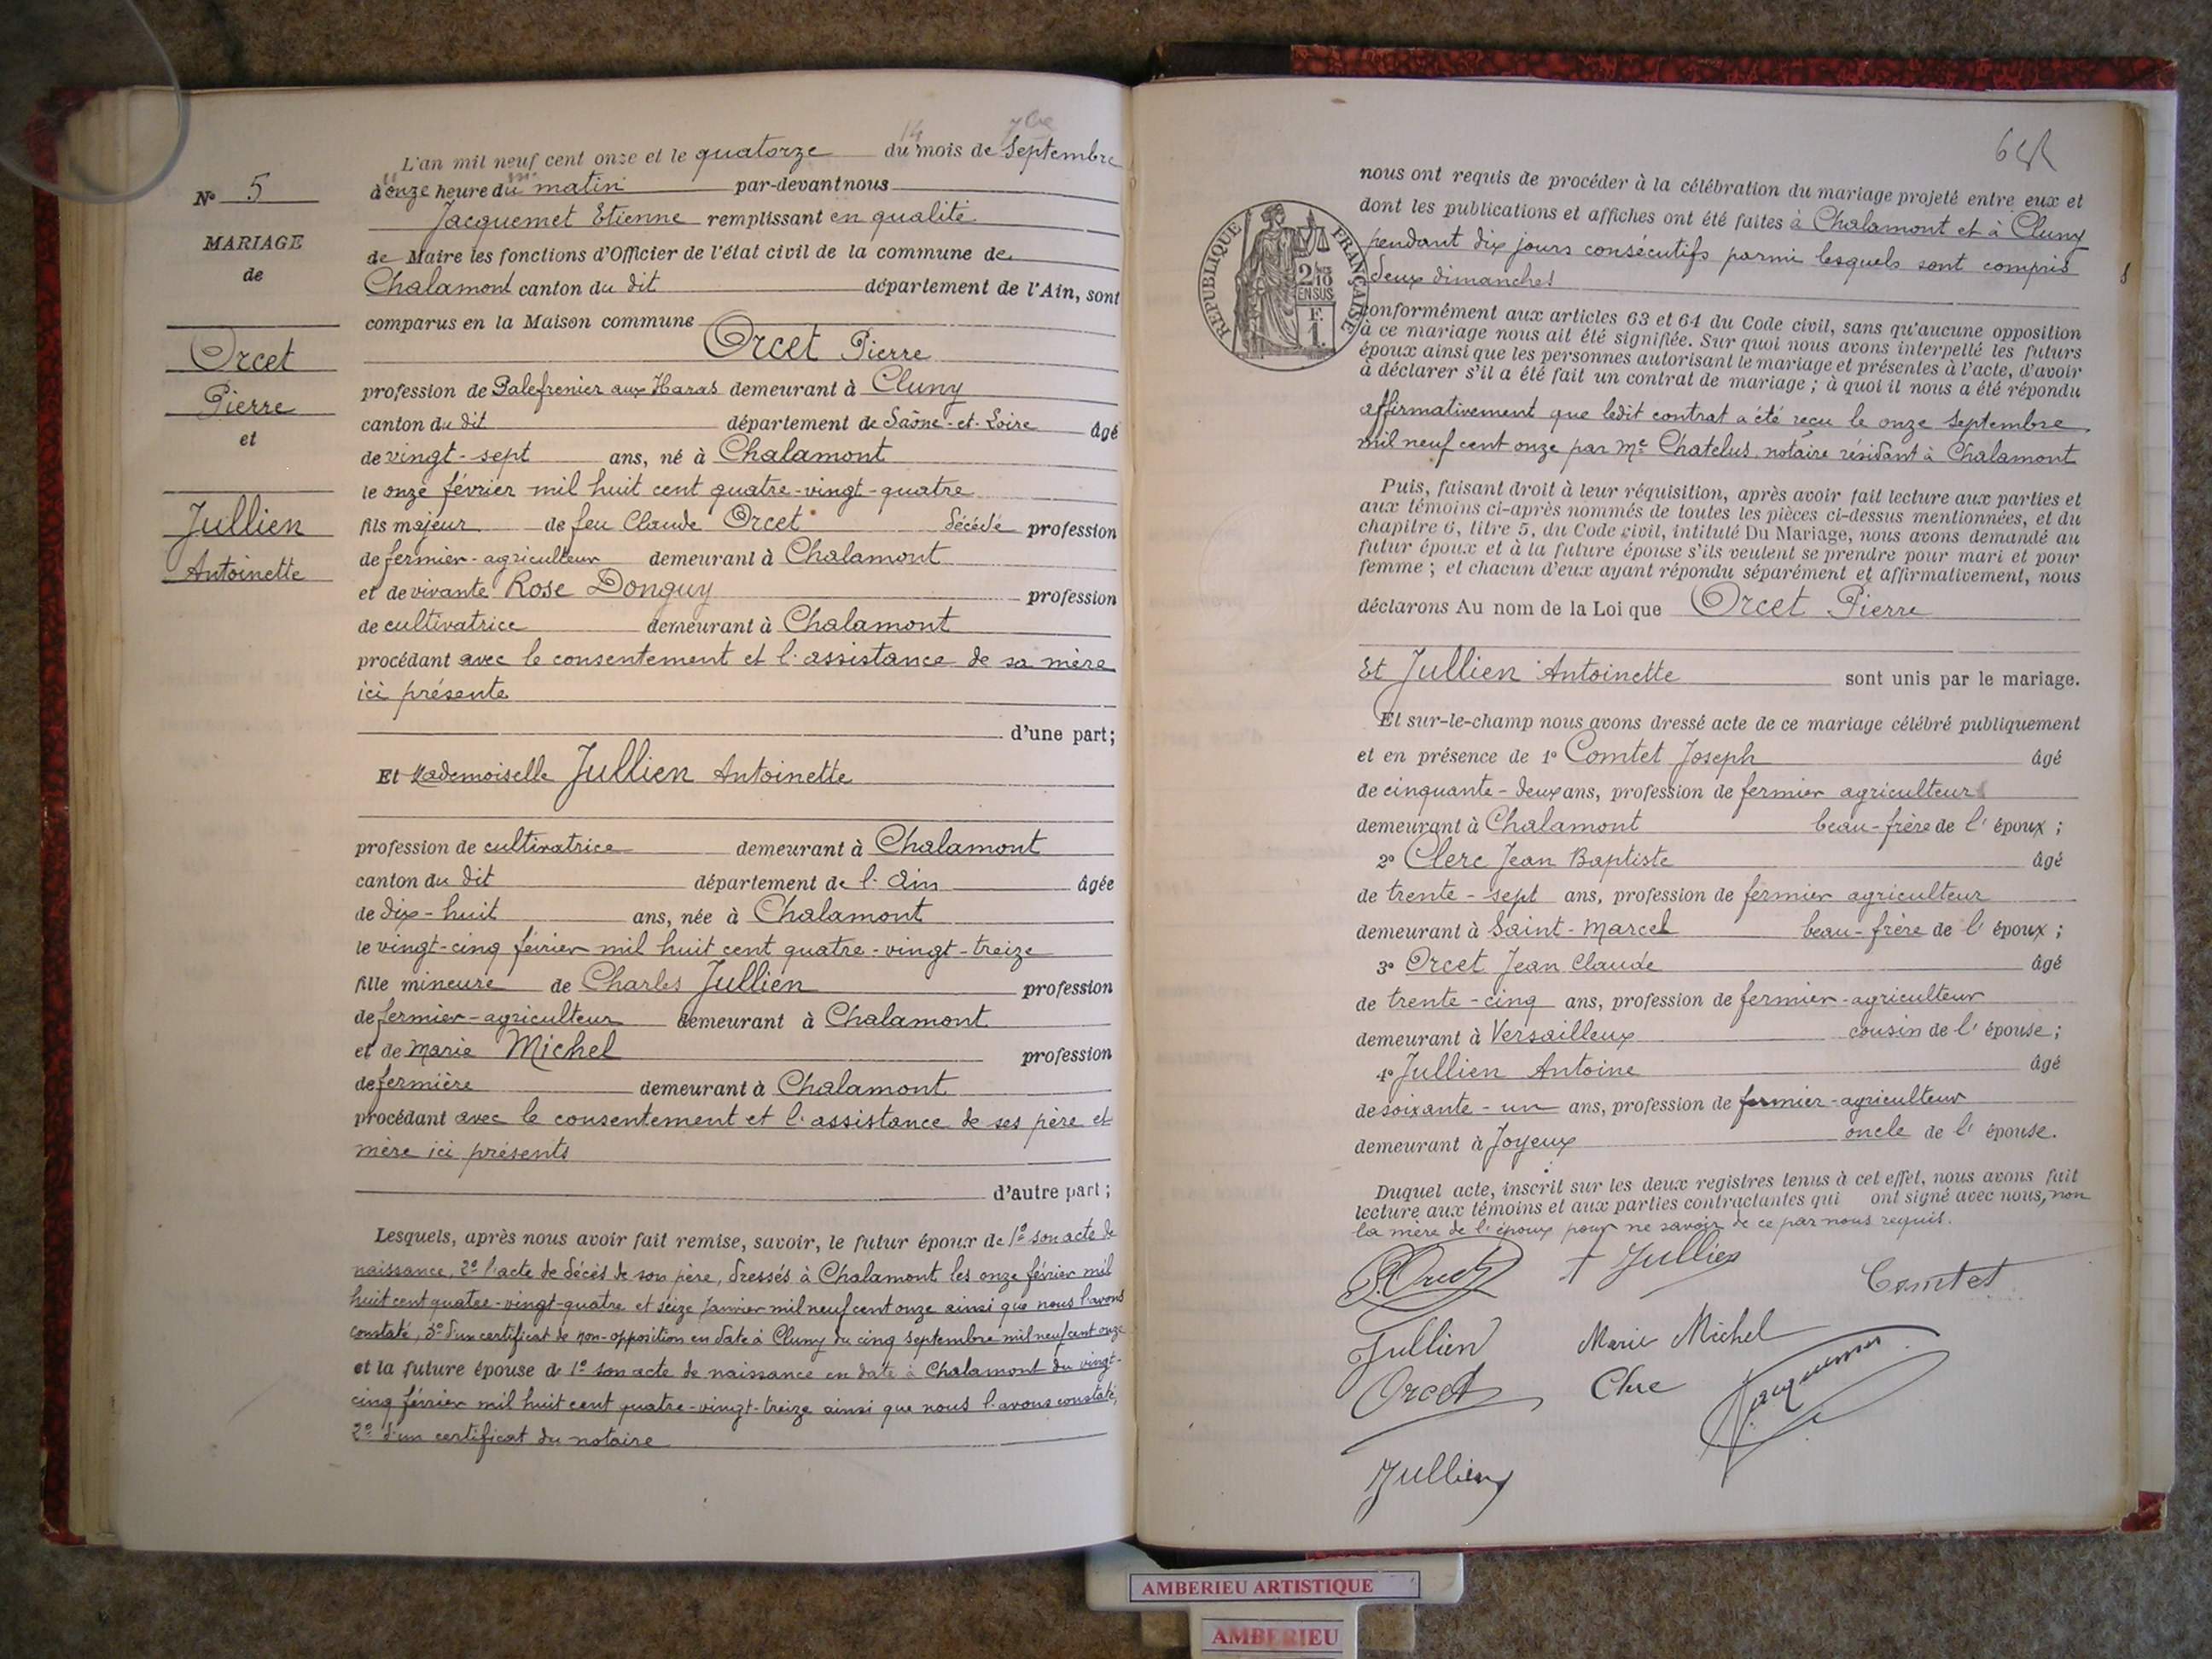 14 7bre
L'an mil neuf cent onze et le quatorze du mois de Septembre
à onze heure du matin par-devant nous
Jacquemet Etienne remplissant en qualité
de Maire les fonctions d'Officier de l'état civil de la commune de
Chalamont canton du dit département de l'Ain, sont
comparus en la Maison commune
Orcet Pierre
profession de Palefrenier aux Haras demeurant à Cluny
canton du dit département de Saône-et-Loire âgé
de vingt-sept ans, né à Chalamont
le onze février mil huit cent quatre-vingt-quatre
fils majeur de feu Claude Orcet décédé profession
de fermier-agriculteur demeurant à Chalamont
et de vivante Rose Donguy profession
de cultivatrice demeurant à Chalamont
procédant avec le consentement et l'assistance de sa mère
ici présente
d'une part;
Et Mademoiselle Jullien Antoinette
profession de cultivatrice demeurant à Chalamont
canton du dit département de l'Ain âgée
de dix-huit ans, née à Chalamont
le vingt-cinq février mil huit cent quatre-vingt-treize
fille mineure de Charles Jullien profession
de fermier-agriculteur demeurant à Chalamont
et de Marie Michel profession
de fermière demeurant à Chalamont
procédant avec le consentement et l'assistance de ses père et
mère ici présents
d'autre part;
Lesquels, après nous avoir fait remise, savoir, le futur époux de 1° son acte de
naissance, 2° l'acte de décès de son père, dressés à Chalamont les onze février mil
huit cent quatre-vingt-quatre et seize janvier mil neuf cent onze ainsi que nous l'avons
constaté, 3° d'un certificat de non-opposition en date à Cluny du cinq septembre mil neuf cent onze
et la future épouse de 1° son acte de naissance en date à Chalamont du vingt-
cinq février mil huit cent quatre-vingt-treize ainsi que nous l'avons constaté,
2° d'un certificat du notaire
N° 5
MARIAGE
de
Orcet
Pierre
et
Jullien
Antoinette
nous ont requis de procéder à la célébration du mariage projeté entre eux et
dont les publications et affiches ont été faites à Chalamont et à Cluny
pendant dix jours consécutifs parmi lesquels sont compris
deux dimanches
conformément aux articles 63 et 64 du Code civil, sans qu'aucune opposition
à ce mariage nous ait été signifiée. Sur quoi nous avons interpellé les futurs
époux ainsi que les personnes autorisant le mariage et présentes à l'acte, d'avoir
à déclarer s'il a été fait un contrat de mariage; à quoi il nous a été répondu
affirmativement que ledit contrat a été reçu le onze Septembre
mil neuf cent onze par Me Chatelus, notaire résidant à Chalamont
Puis, faisant droit à leur réquisition, après avoir fait lecture aux parties et
aux témoins ci-après nommés de toutes les pièces ci-dessus mentionnées, et du
chapitre 6, titre 5, du Code civil, intitulé Du Mariage, nous avons demandé au
futur époux et à la future épouse s'ils veulent se prendre pour mari et pour
femme; et chacun d'eux ayant répondu séparément et affirmativement, nous
déclarons Au nom de la Loi que Orcet Pierre
Et Jullien Antoinette sont unis par le mariage.
Et sur-le-champ nous avons dressé acte de ce mariage célébré publiquement
et en présence de 1° Comtet Joseph âgé
de cinquante-deux ans, profession de fermier agriculteur
demeurant à Chalamont beau-frère de l'époux;
2° Clerc Jean Baptiste âgé
de trente-sept ans, profession de fermier agriculteur
demeurant à Saint-Marcel beau-frère de l'époux;
3° Orcet Jean Claude âgé
de trente-cinq ans, profession de fermier-agriculteur
demeurant à Versailleux cousin de l'épouse;
4° Jullien Antoine âgé
de soixante-un ans, profession de fermier-agriculteur
demeurant à Joyeux oncle de l'épouse.
Duquel acte, inscrit sur les deux registres tenus à cet effet, nous avons fait
lecture aux témoins et aux parties contractantes qui ont signé avec nous, non
la mère de l'époux pour ne savoir de ce par nous requis.
P. Orcet A Jullien Comtet
Jullien Marie Michel
Orcet Clerc Jacquemet
Jullien
REPUBLIQUE FRANÇAISE
2/10
EN SUS
F.
1.
AMBERIEU ARTISTIQUE
AMBERIEU